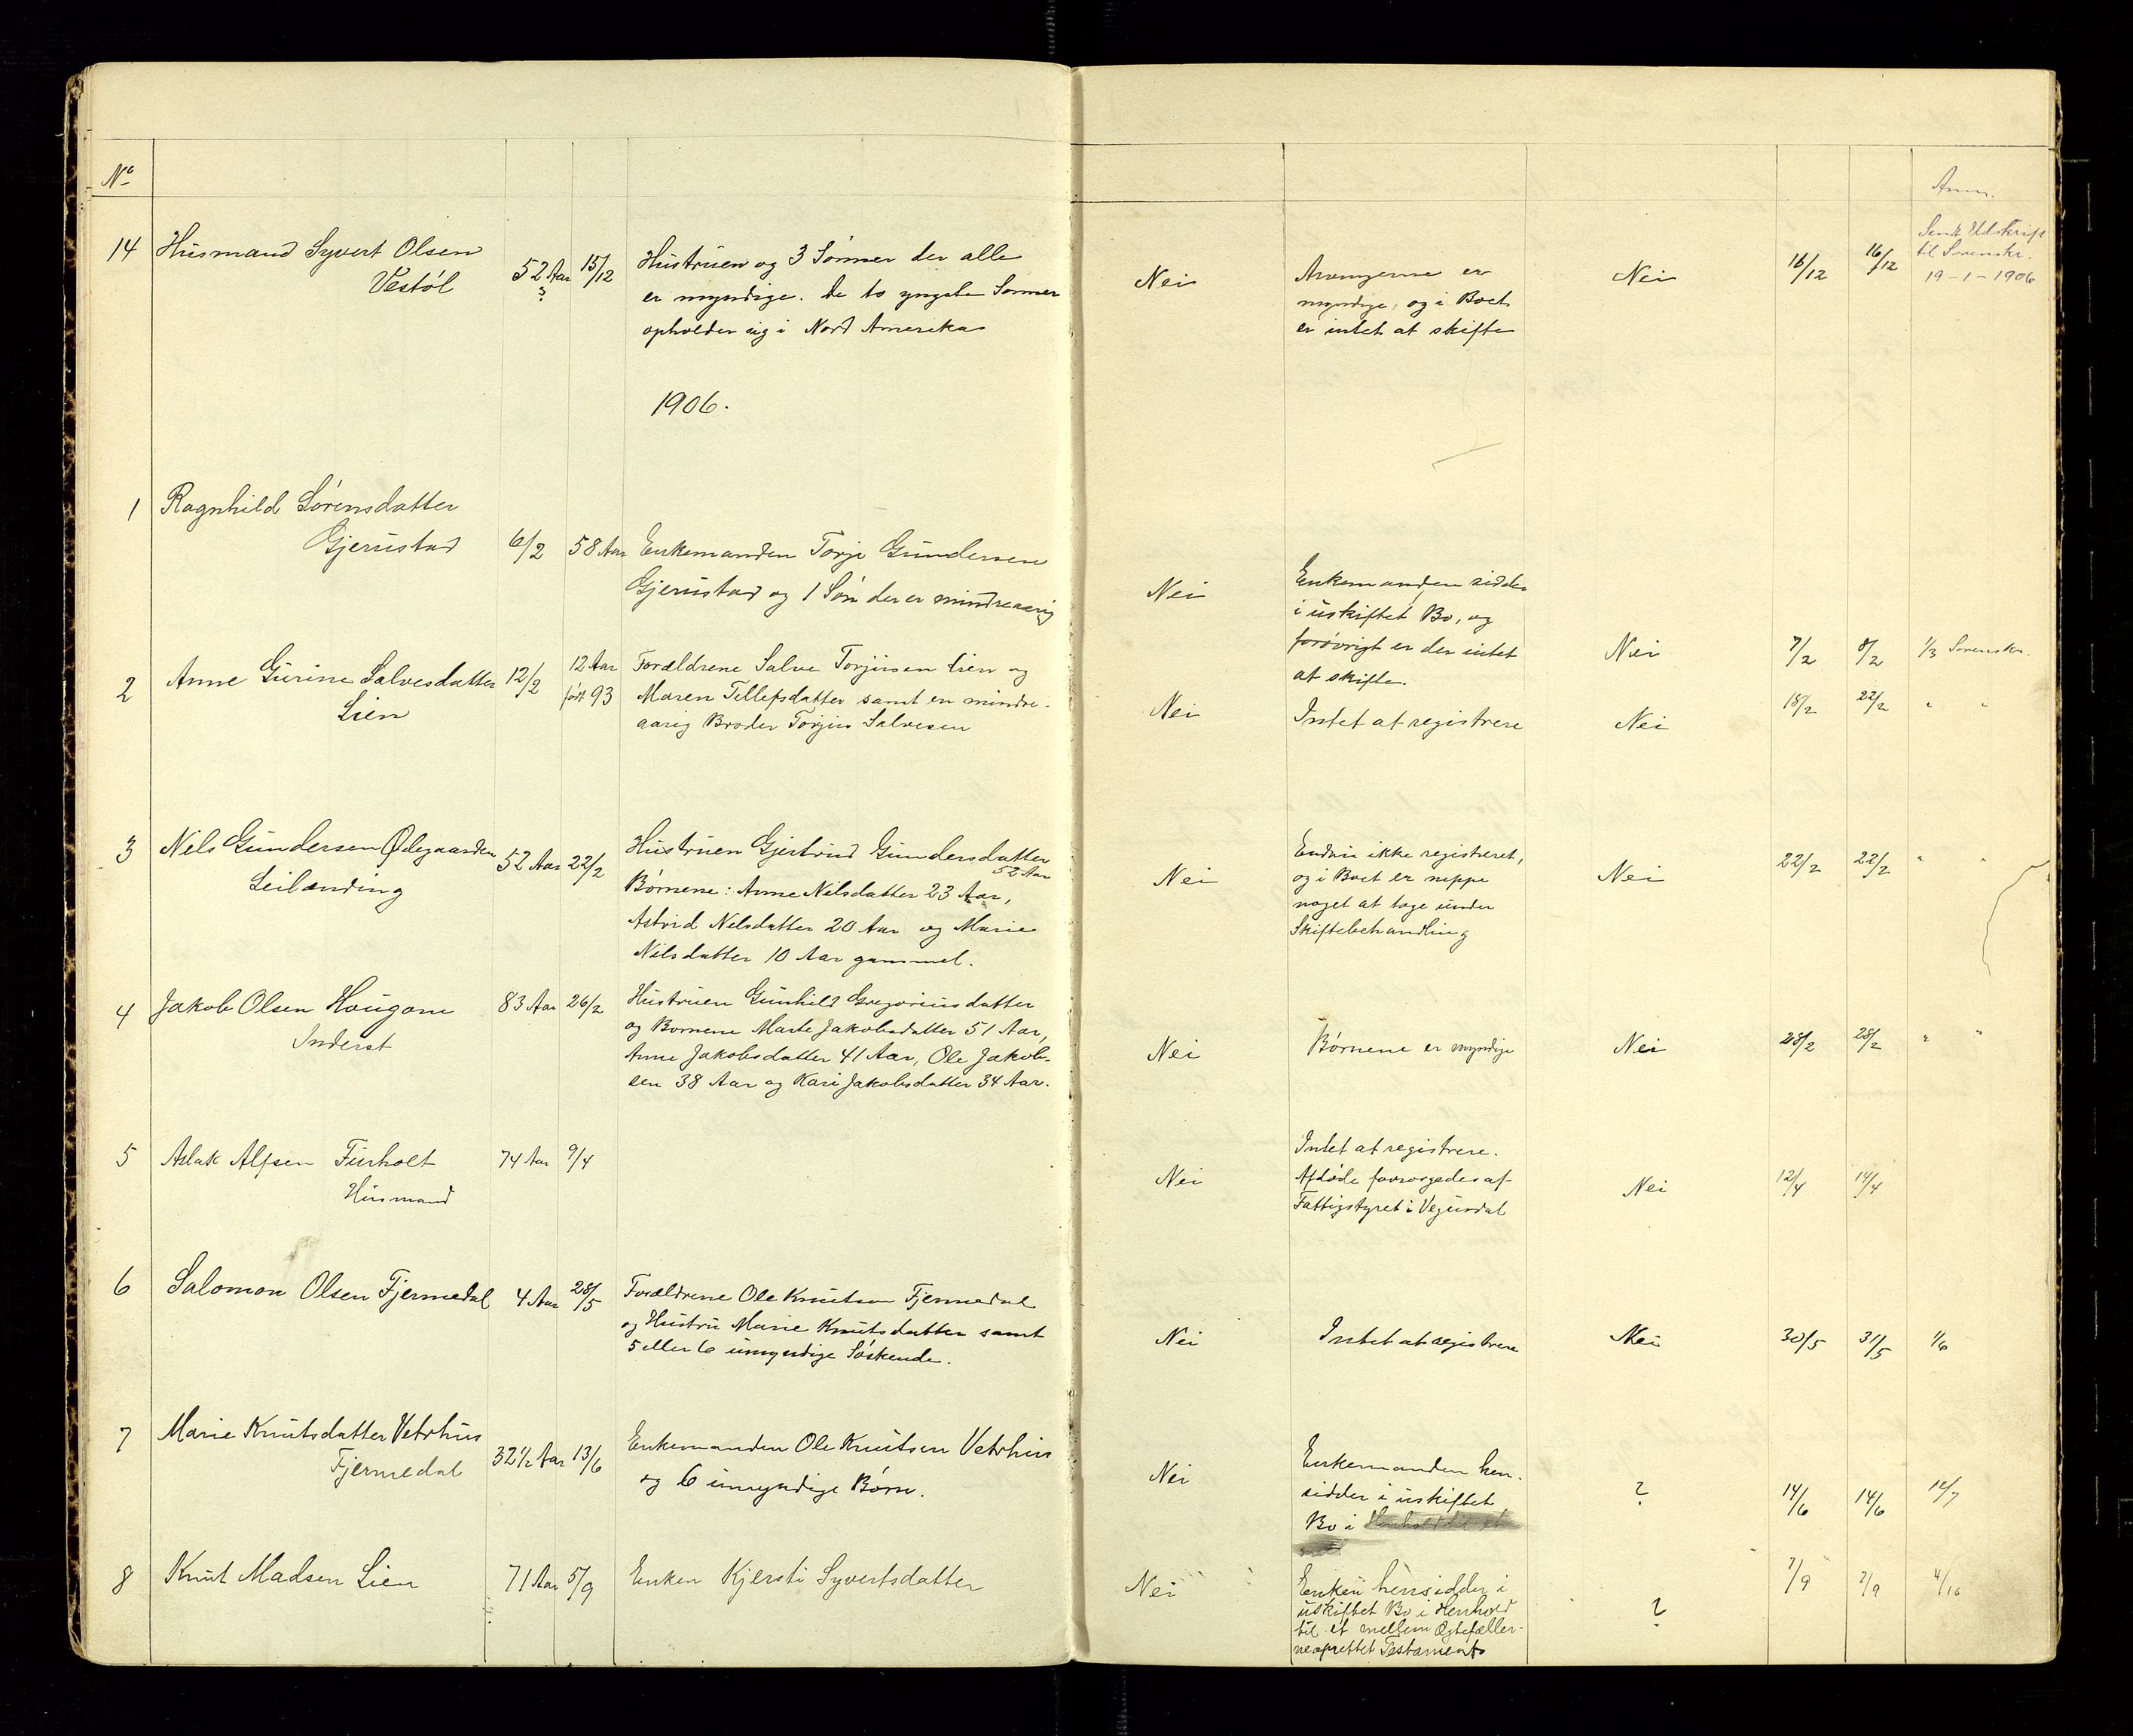 No
Anm.
14 Husmand Syvert Olsen
Vestöl
52 Aar
?
15/12
Hustruen og 3 Sönner der alle
er myndige. De to yngste Sønner
opholder sig i Nord Amerika
Nei
Arvingerne er
myndige, og i Boet
er intet at skifte
Nei
16/12
16/12
Sendt Udskrift
til Sorenskr.
19-1-1906
1906.
1 Ragnhild Sörensdatter
Gjerustad
6/2
58 Aar
Enkemanden Torje Gundersen
Gjerustad og 1 Sön der er mindreaarig
Nei
Enkemanden sidder
i uskiftet Bo, og
forövrigt er der intet
at skifte.
Nei
7/2
8/2
1/3 Sorenskr.
2 Anne Gurine Salvesdatter
Lien
12/2
12 Aar
født 93
Forældrene Salve Torjusen Lien og
Maren Tellefsdatter samt en mindre-
aarig Broder Torjus Salvesen
Nei
Intet at registrere
Nei
18/2
22/2
" "
3 Nils Gundersen Ødegaarden
Leilænding
52 Aar
22/2
Hustruen Gjertrud Gundersdatter
52 Aar
Børnene: Anne Nilsdatter 23 Aar,
Astrid Nilsdatter 20 Aar og Marie
Nilsdatter 10 Aar gammel.
Nei
Endnu ikke registreret,
og i Boet er neppe
noget at tage under
Skiftebehandling
Nei
22/2
22/2
" "
4 Jakob Olsen Hougane
Inderst
83 Aar
26/2
Hustruen Gunhild Gregoriusdatter
og Børnene Marte Jakobsdatter 51 Aar,
Anne Jakobsdatter 41 Aar, Ole Jakob-
sen 38 Aar og Kari Jakobsdatter 34 Aar.
Nei
Börnene er myndige
Nei
28/2
28/2
" "
5 Aslak Alfsen Furholt
Husmand
74 Aar
9/4
Nei
Intet at registrere.
Afdøde forsørgedes af
Fattigstyret i Vegusdal
Nei
12/4
14/4
6 Salomon Olsen Fjermedal
4 Aar
28/5
Forældrene Ole Knutsen Fjermedal
og Hustru Marie Knutsdatter samt
5 eller 6 umyndige Söskende.
Nei
Intet at registrere
Nei
30/5
31/5
1/6
7 Marie Knutsdatter Vetrhus
Fjermedal
32 1/2 Aar
13/6
Enkemanden Ole Knutsen Vetrhus
og 6 umyndige Börn.
Nei
Enkemanden hen-
sidder i uskiftet
Bo i Henhold til et
?
14/6
14/6
12/7
8 Knut Madsen Lien
71 Aar
5/9
Enken Kjersti Syvertsdatter
Nei
Enken hensidder i
uskiftet Bo i Henhold
til et mellem Ægtefæller-
ne oprettet Testament
?
7/9
7/9
4/10